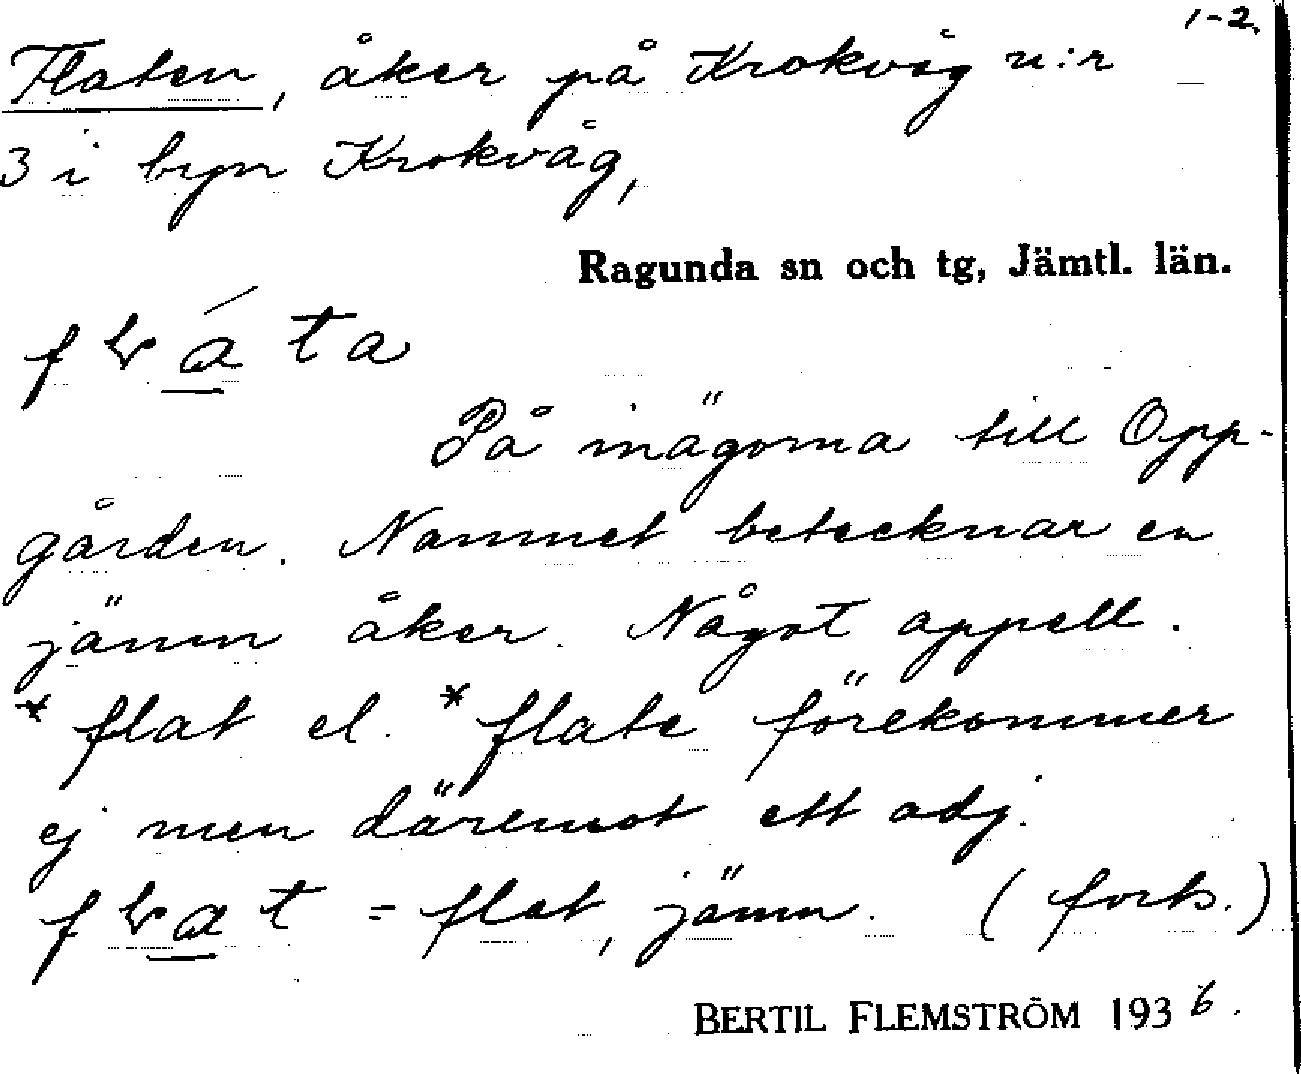 1-2.
Flaten, åker på Krokvåg n:r
3 i byn Krokvåg,
Ragunda sn och tg, Jämtl. län.
På inägorna till Opp-
gården. Namnet betecknar en
jämn åker. Något appell.
*flat el. *flate förekommer
ej men däremot ett adj.
= flat, jämn. (forts.)
BERTIL FLEMSTRÖM 1936.